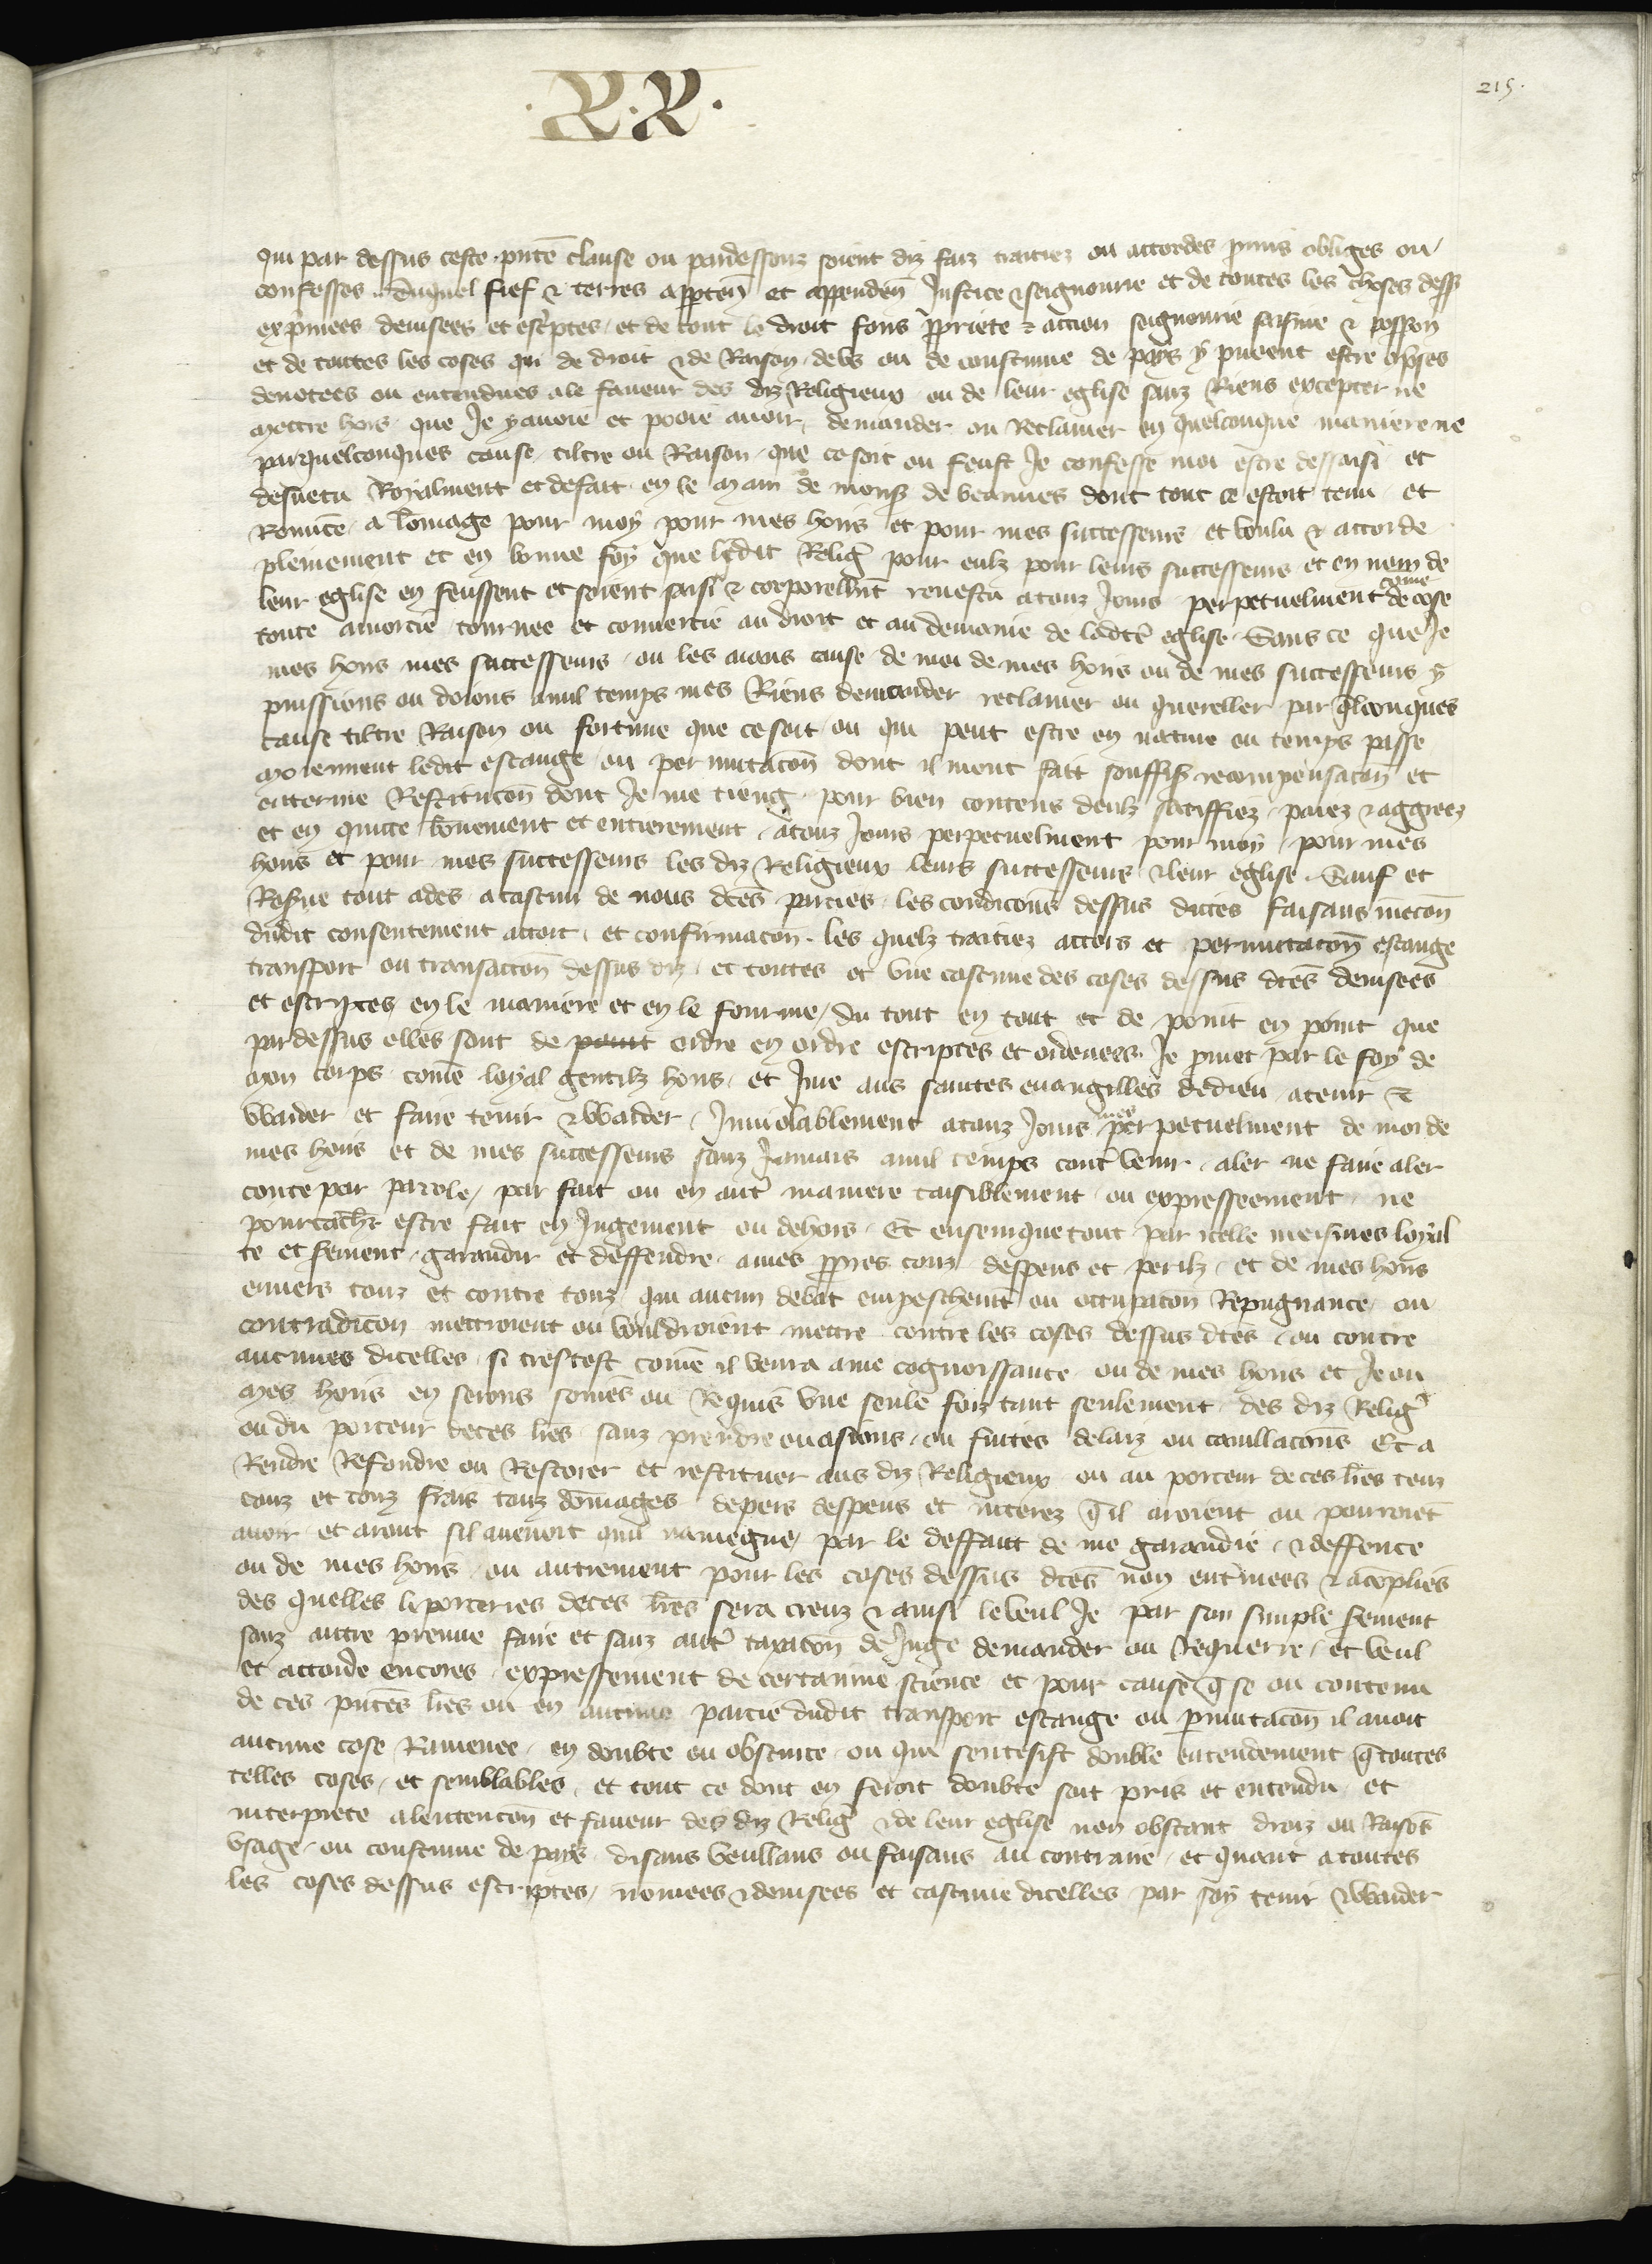 .R.R.
215.
qui par dessus ceste pnte clause ou pardessouz soient diz faiz traitiez ou accordes pmis obliges ou
confesses. Duquel fief & terres apptenñ et appendeñ Justice & seignourie et de toutes les choses dess
expmees deuisees et escptes et de tout le droit fons pprietè & accion seignourie saisine & possoñ
et de toutes les coses qui de droit & de Raison debs ou de coustume de pays y pueent estre opses
denotees ou entendues a le faueur des diz Religieux ou de leur eglise sanz Riens excepter ne
mettre hors que Je y auoie et pooie auoir, demander ou Reclamer en quelconque maniere ne
par quelconques cause tiltre ou Raison que ce soit ou feust Je confesse moi estre dessaisi et
desuetu Royalment et de fait en le main de monsr de beauues dont tout ce estoit tenu et
Renuce a lomage pour moy pour mes hoirs et pour mes successeurs et voulu & accorde
pleinement et en bonne foy que ledit Relig pour eulz pour leurs successeurs et en nom de
leur eglise en feussent et soient saisi & corporelmt reuestu a touz Jours perpetuelment come de cose
toute amortie tournee et conuertie au droit et au demanie de ladte eglise Sans ce que Je
mes hoirs mes successeurs ou les aians cause de moi de mes hoirs ou de mes successeurs y
puissions ou doions a nul temps mes Riens demander reclamer ou quereller par qlconques
cause tiltre Raison ou fortune que ce soit ou qui peut estre en nature en temps passe
moiennent ledit escange ou permutacoñ dont il mont fait souffis recompensacoñ et
enterine Restitucoñ dont Je me tieng pour bien contens deulz satiffiez paiez & aggreez
et en quitte bonement et entierement a touz Jours perpetuelment pour moy pour mes
hoirs et pour mes successeurs les diz Religieux leurs successeurs & leur eglise Sauf et
Reserue tout ades a cascun de nous dtes parties les condicons dessus dittes faisans mecoñ
dudit consentement attoit et confirmacoñ les quelz traitiez accors et permutacoñ escange
transport ou transaccoñ dessus diz et toutes et vne cascune des coses dessus dtes deuisees
et escriptes en le maniere et en le fourme du tout en tout et de point en point que
par dessus elles sont de point ordre en ordre escriptes et ordenees Je pmet par le foy de
mon corps come loyal gentilz homs et Jure aus saintes euangilles de dieu a tenir &
Warder et faire tenir & Warder Inuiolablement a touz Jours mes perpetuelment de moi de
mes hoirs et de mes successeurs sanz Jamais a nul temps contre venir aler ne faire aler
contre par parole par fait ou en autre maniere taisiblement ou expresseement ne
pourcachier estre fait en Jugement ou dehors Et ensemquetout par icelle meismes loyal
te et serment garandir et deffendre a mes ppres couz despens et perilz et de mes hoirs
enuers touz et contre touz qui aucun debat empeschemt ou occupacoñ Repugnance ou
contradicoñ mettroient ou vouldroient mettre contre les coses dessus dtes ou contre
aucunes dicelles si trestost come il venra a me cognoissance ou de mes hoirs et Je ou
mes hoirs en serons somes ou Requis vne seule foiz tant seulement des diz Relig
ou du porteur de ces lres sanz prendre euasions ou fuites delaiz ou cauillacons Et a
Rendre Refondre ou Restorer et restituer aus diz Religieux ou au porteur de ces lres touz
couz et touz frais touz domages depers despens et interez q il aroient ou pourroiet
auoir et aront sil auenoit qui namegne par le deffaut de me garandie & deffence
ou de mes hoirs ou autrement pour les coses dessus dtes non enterinees & acoplies
des quelles li porteries de ces lres sera creuz & ainsi le veul Je par son simple serment
sanz autre preuue faire et sanz autre taxacoñ de Juge demander ou Requerre et veul
et accorde encores expressement de certainne science et pour cause q se ou contenu
de ces pntes lres ou en aucune partie dudit transport escange ou pmutacoñ il auoit
aucune cose Ramenee en doubte ou obscurte ou que sentesist double entendement q toutes
telles coses et semblables et tout ce dont en seroit doubte soit pris et entendu et
interprete a lentencoñ et faueur des diz Relig & de leur eglise non obstant droiz ou Raisos
vsage ou coustume de pays disans veullans ou faisans au contraire et quant a toutes
les coses dessus escriptes nomees & deuisees et cascune dicelles par soy tenir & Warder